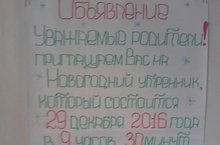 Объявление
Уважаемые родители!
приглашаем Вас на
Новогодний утренник,
который состоится
29 декабря 2016 года
в 9 часов 30 минут